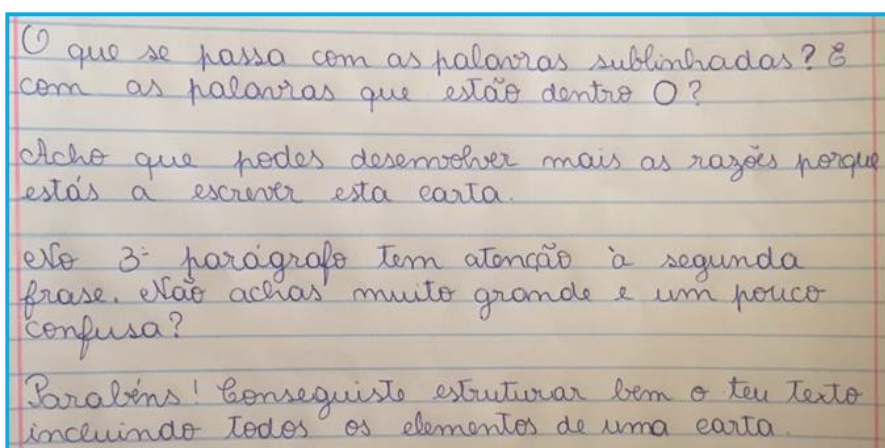 O que se passa com as palavras sublinhadas? E
com as palavras que estão dentro O?
Acho que podes desenvolver mais as razões porque
estás a escrever esta carta.
No 3º parágrafo tem atenção à segunda
frase. Não achas muito grande e um pouco
confusa?
Parabéns! Conseguiste estruturar bem o teu texto
incluindo todos os elementos de uma carta.